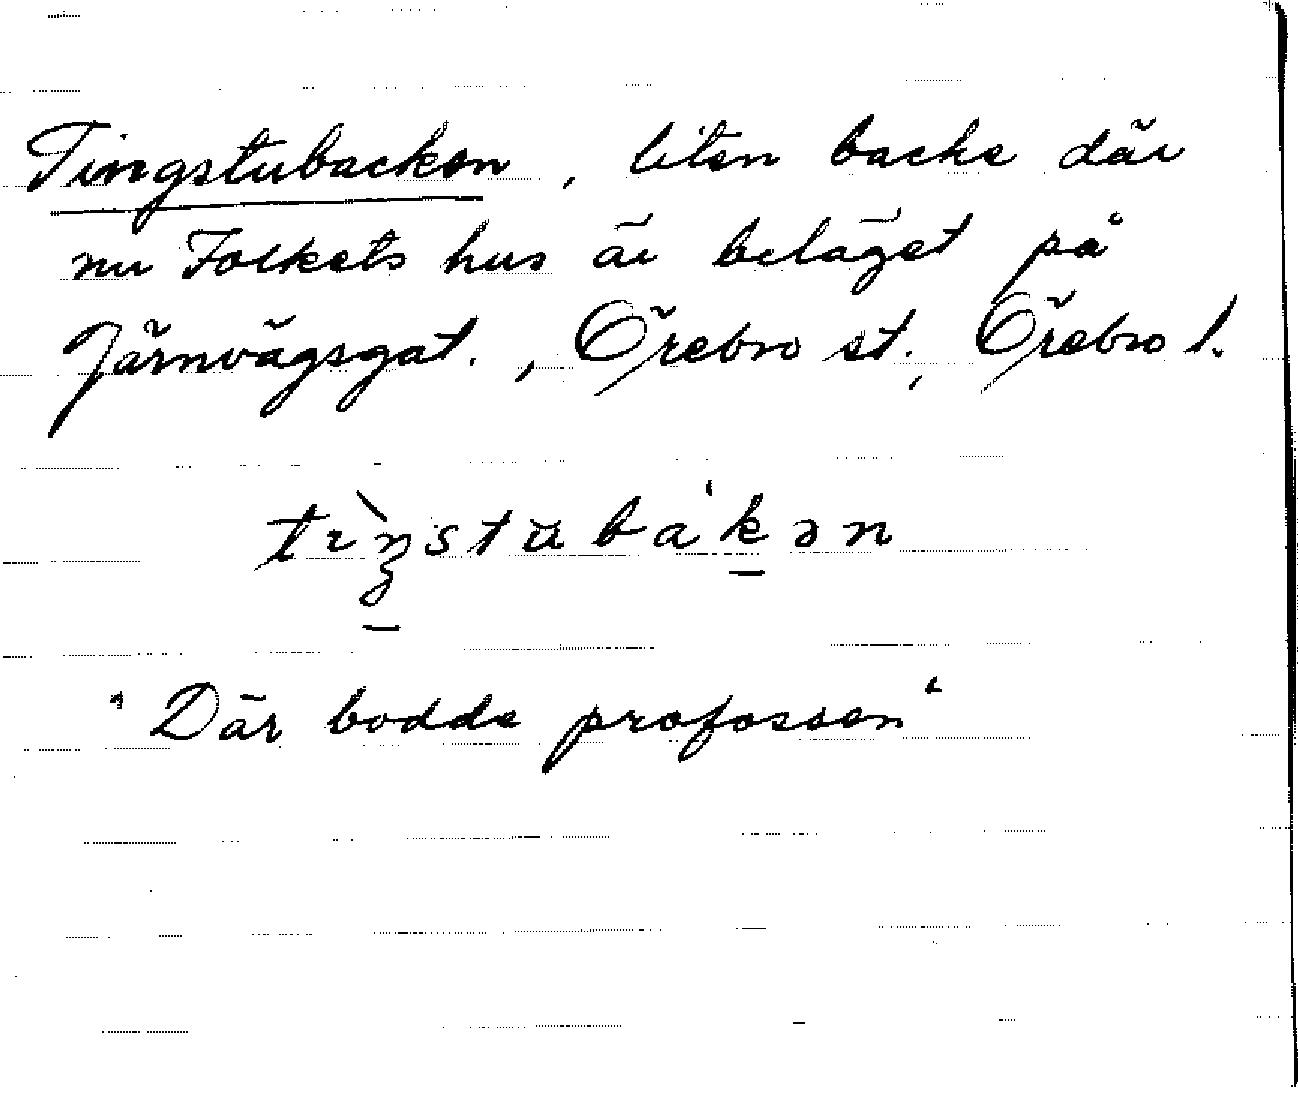 Tingstubacken, liten backe där
nu Folkets hus är beläget på
Järnvägsgat., Örebro st., Örebro l.
tìŋstubа̍kən
"Där bodde profossen"